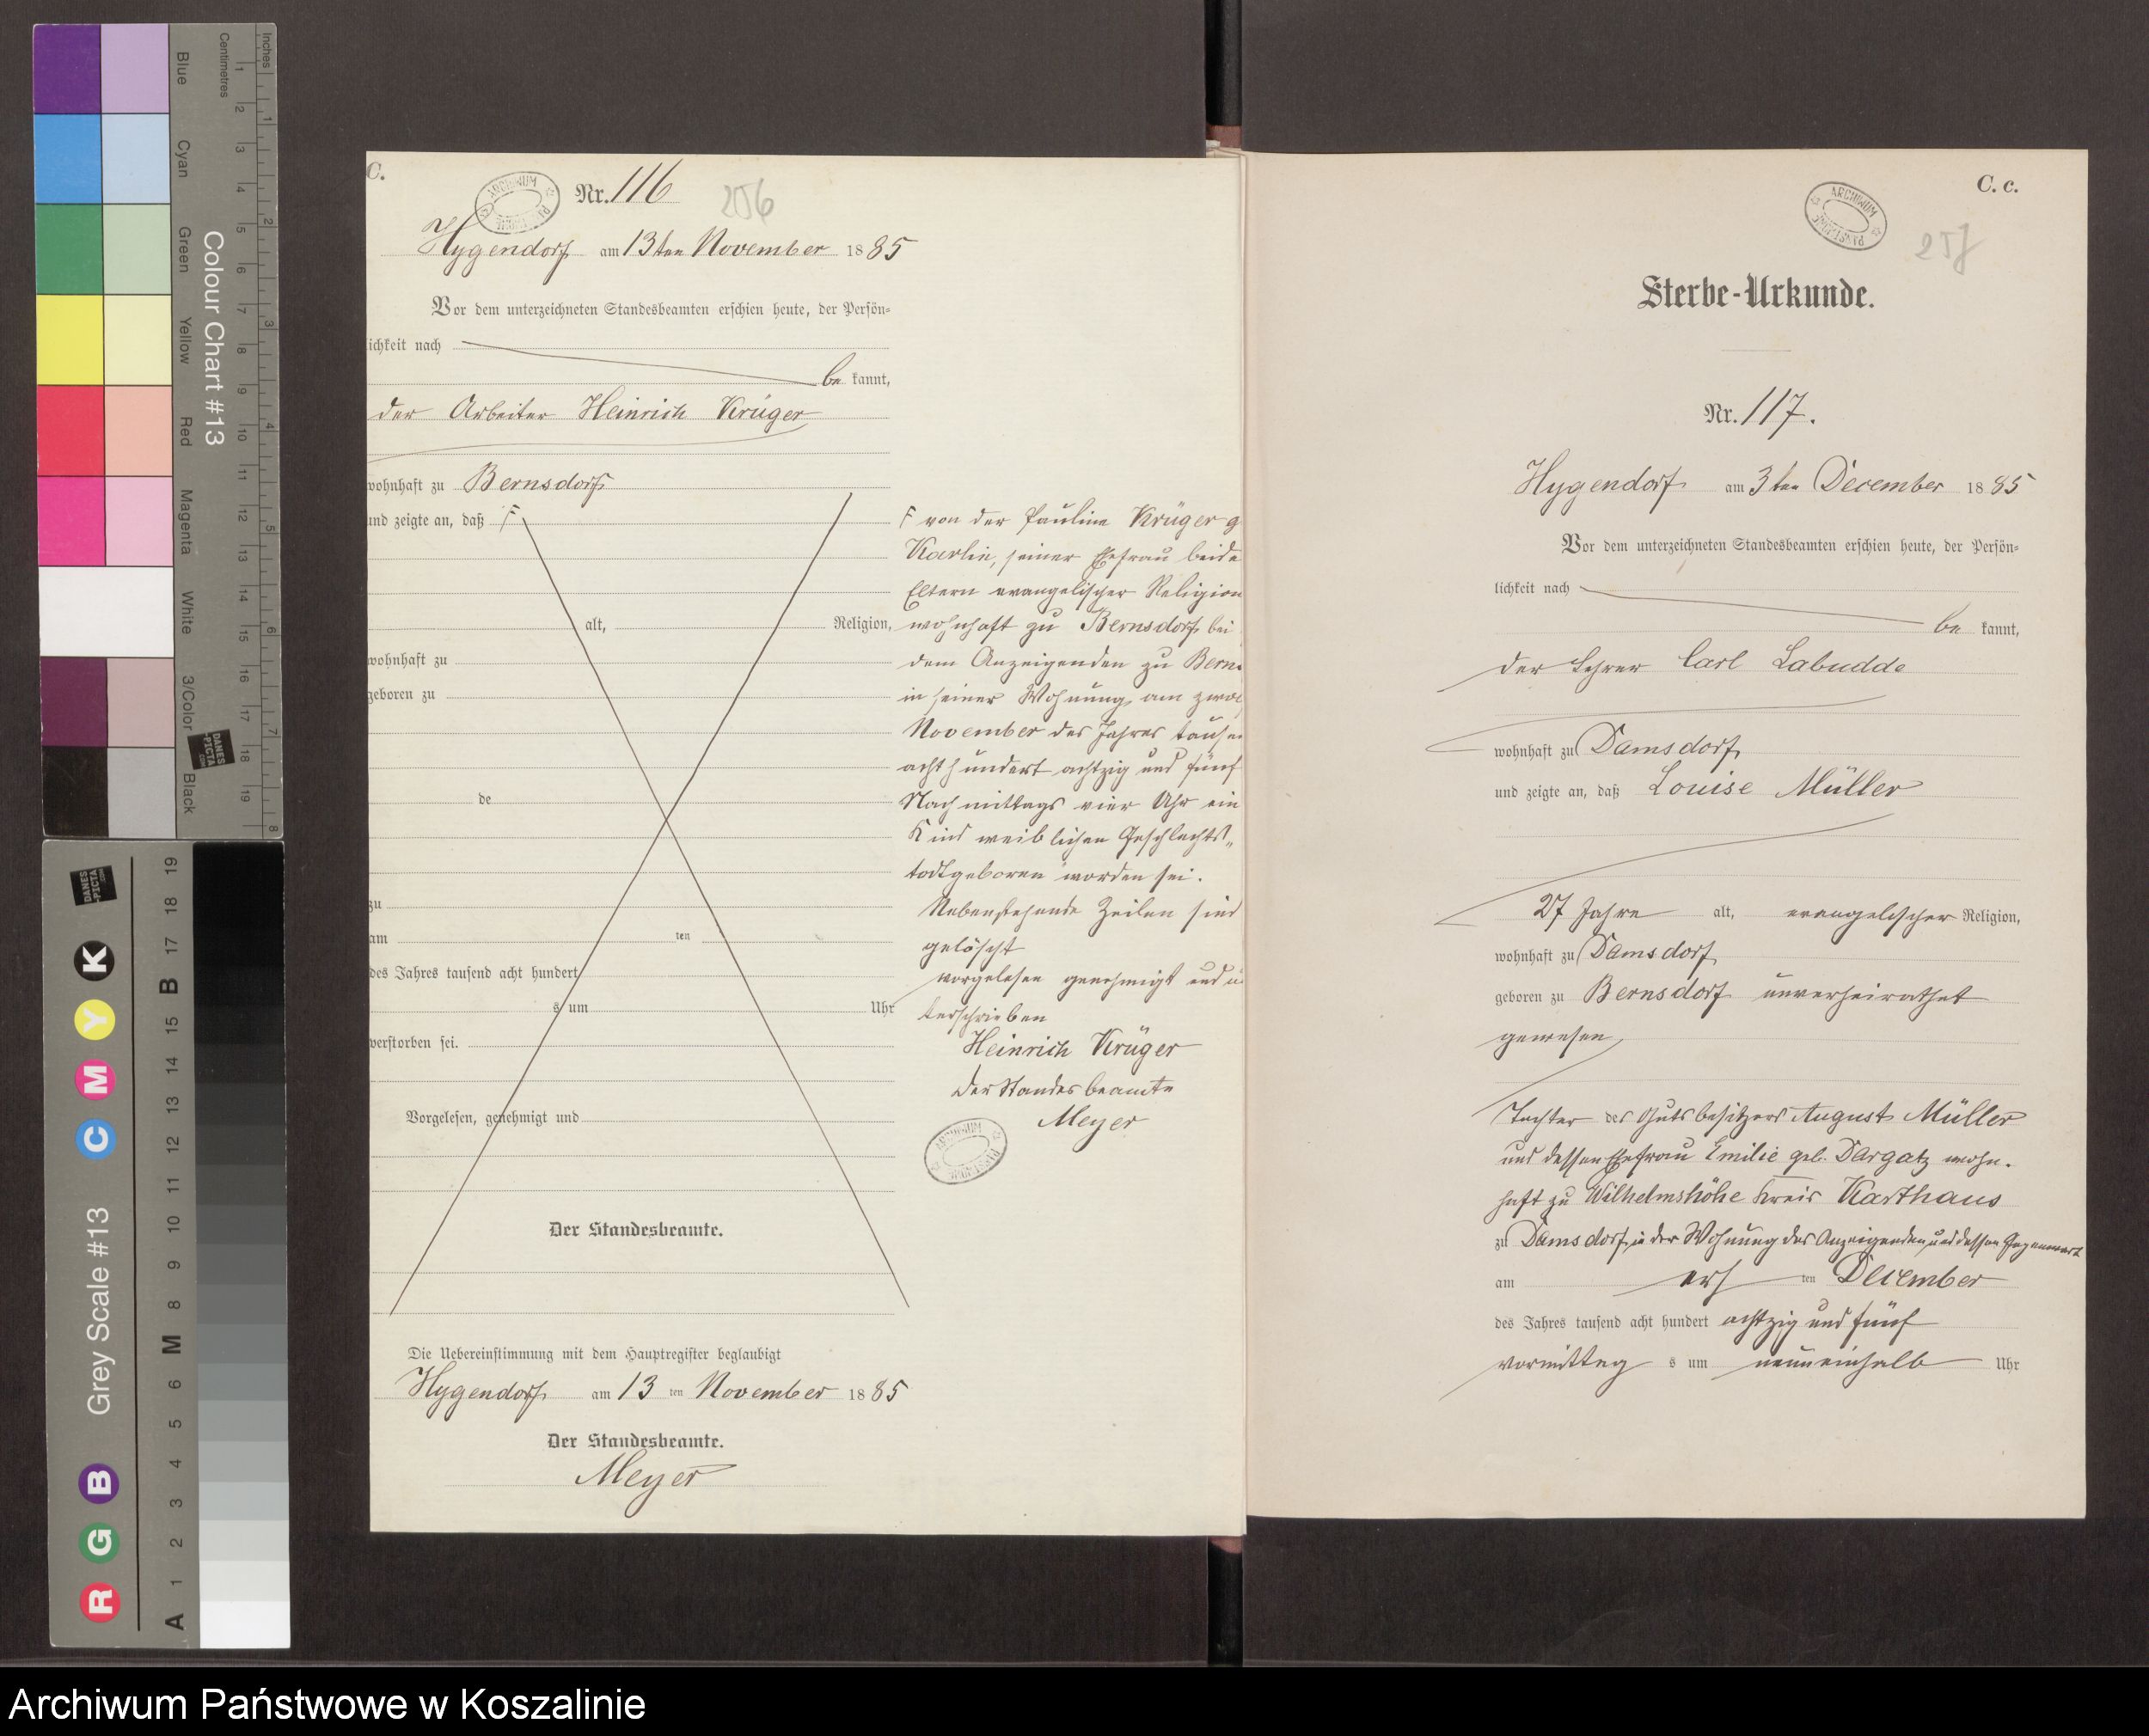 Blue Cyan Green Yellow Red Magenta White 3/Color Black
Colour Chart #13
Centimetres
Inches
1 2 3 4 5 6 7 8 9 10 11 12 13 14 15 16 17 18 19
1 2 3 4 5 6 7 8
DANES
PICTA
.COM
R G B Grey Scale #13 C M Y K
A 1 2 3 4 5 6 M 8 9 10 11 12 13 14 15 B 17 18 19
DANES
PICTA
.COM
C.
ARCHIWUM PAŃSTWOWE
Nr. 116
256
Hygendorf am 13ten November 1885
Vor dem unterzeichneten Standesbeamten erschien heute, der Persön-
lichkeit nach
be kannt,
der Arbeiter Heinrich Krüger
wohnhaft zu Bernsdorf
und zeigte an, daß
alt, Religion,
wohnhaft zu
geboren zu
de
zu
am ten
des Jahres tausend acht hundert
s um Uhr
verstorben sei.
Vorgelesen, genehmigt und
Der Standesbeamte.
von der Pauline Krüger g
Karlin, seiner Ehefrau beide
Eltern evangelischer Religion
wohnhaft zu Bernsdorf bei
dem Anzeigenden zu Berns
in seiner Wohnung, am zwöl
November des Jahres tausen
achthundert achtzig und fünf
Nachmittags vier Uhr ein
Kind weiblichen Geschlechts„
todtgeboren worden sei.
Nebenstehende Zeilen sind
gelöscht
vorgelesen genehmigt und un
terschrieben
Heinrich Krüger
Der Standesbeamte
Meyer
ARCHIWUM PAŃSTWOWE
Die Uebereinstimmung mit dem Hauptregister beglaubigt
Hygendorf am 13 ten November 1885
Der Standesbeamte.
Meyer
C. c.
ARCHIWUM PAŃSTWOWE
257
Sterbe-Urkunde.
Nr. 117.
Hygendorf am 3ten December 1885
Vor dem unterzeichneten Standesbeamten erschien heute, der Persön-
lichkeit nach
be kannt,
der Lehrer Carl Labudda
wohnhaft zu Damsdorf
und zeigte an, daß Louise Müller
27 Jahre alt, evangelischer Religion,
wohnhaft zu Damsdorf
geboren zu Bernsdorf unverheirathet
gewesen,
Tochter des Gutsbesitzers August Müller
und dessen Ehefrau Emilie geb. Dargatz wohn.
haft zu Wilhelmshöhe Kreis Karthaus
zu Damsdorf, in der Wohnung des Anzeigenden, und dessen Gegenwart
am ersten December
des Jahres tausend acht hundert achtzig und fünf
vormittags um neuneinhalb Uhr
Archiwum Państwowe w Koszalinie